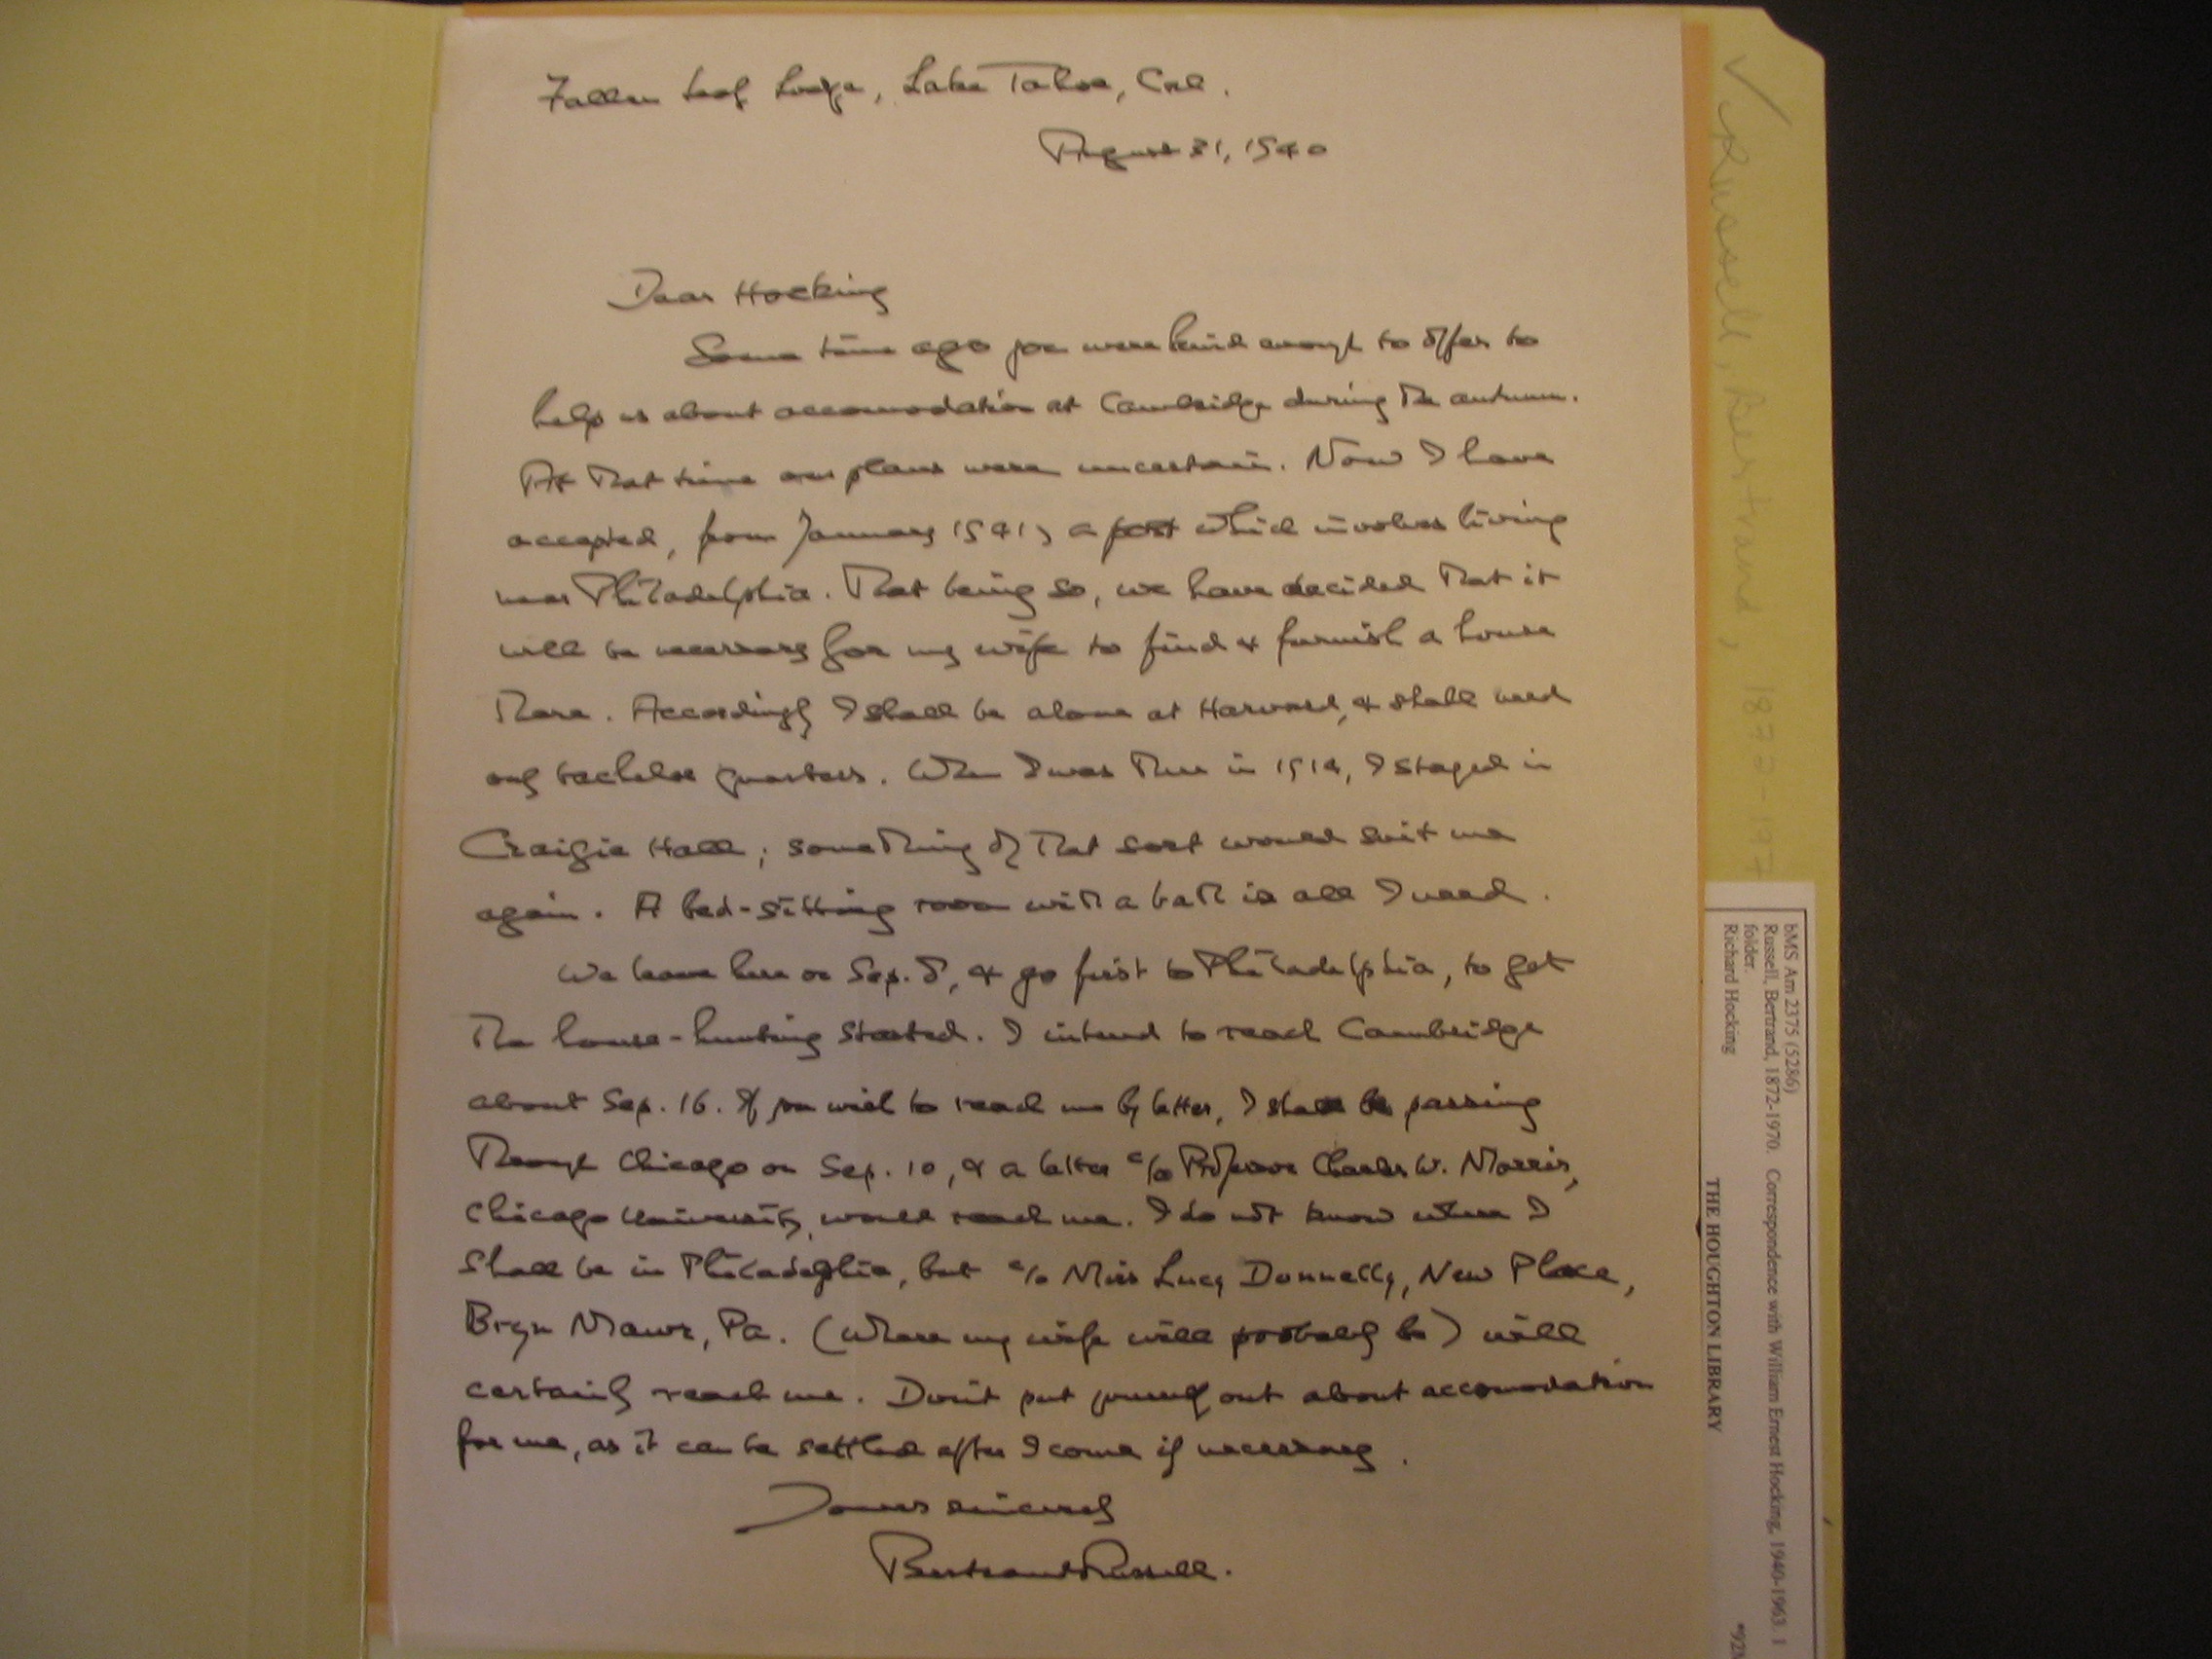 Fallen Leaf Lodge, Lake Tahoe, Cal.
August 31, 1940
Dear Hocking
Some time ago you were kind enough to offer to
help us about accomodation at Cambridge during the autumn.
At that time our plans were uncertain. Now I have
accepted, from January 1941, a post which involves living
near Philadelphia. That being so, we have decided that it
will be necessary for my wife to find & furnish a house
there. Accordingly I shall be alone at Harvard, & shall need
only bachelor quarters. When I was there in 1914, I stayed in
Craigie Hall; something of that sort would suit me
again. A bed-sitting room with a bath is all I need.
We leave here on Sep. 8, & go first to Philadelphia, to get
the house-hunting started. I intend to reach Cambridge
about Sep. 16. If you wish to reach me by letter, I shall be passing
through Chicago on Sep. 10, & a letter c/o Professor Charles W. Morris,
Chicago University, would reach me. I do not know where I
shall be in Philadelphia, but c/o Miss Lucy Donnelly, New Place,
Bryn Mawr, Pa. (where my wife will probably be) will
certainly reach me. Don't put yourself out about accomodation
for me, as it can be settled after I come if necessary.
Yours sincerely
Bertrand Russell.
✓ Russell, Bertrand, 1872-197
bMS Am 2375 (5286)
Russell, Bertrand, 1872-1970. Correspondence with William Ernest Hocking, 1940-1963. 1
folder.
Richard Hocking
THE HOUGHTON LIBRARY